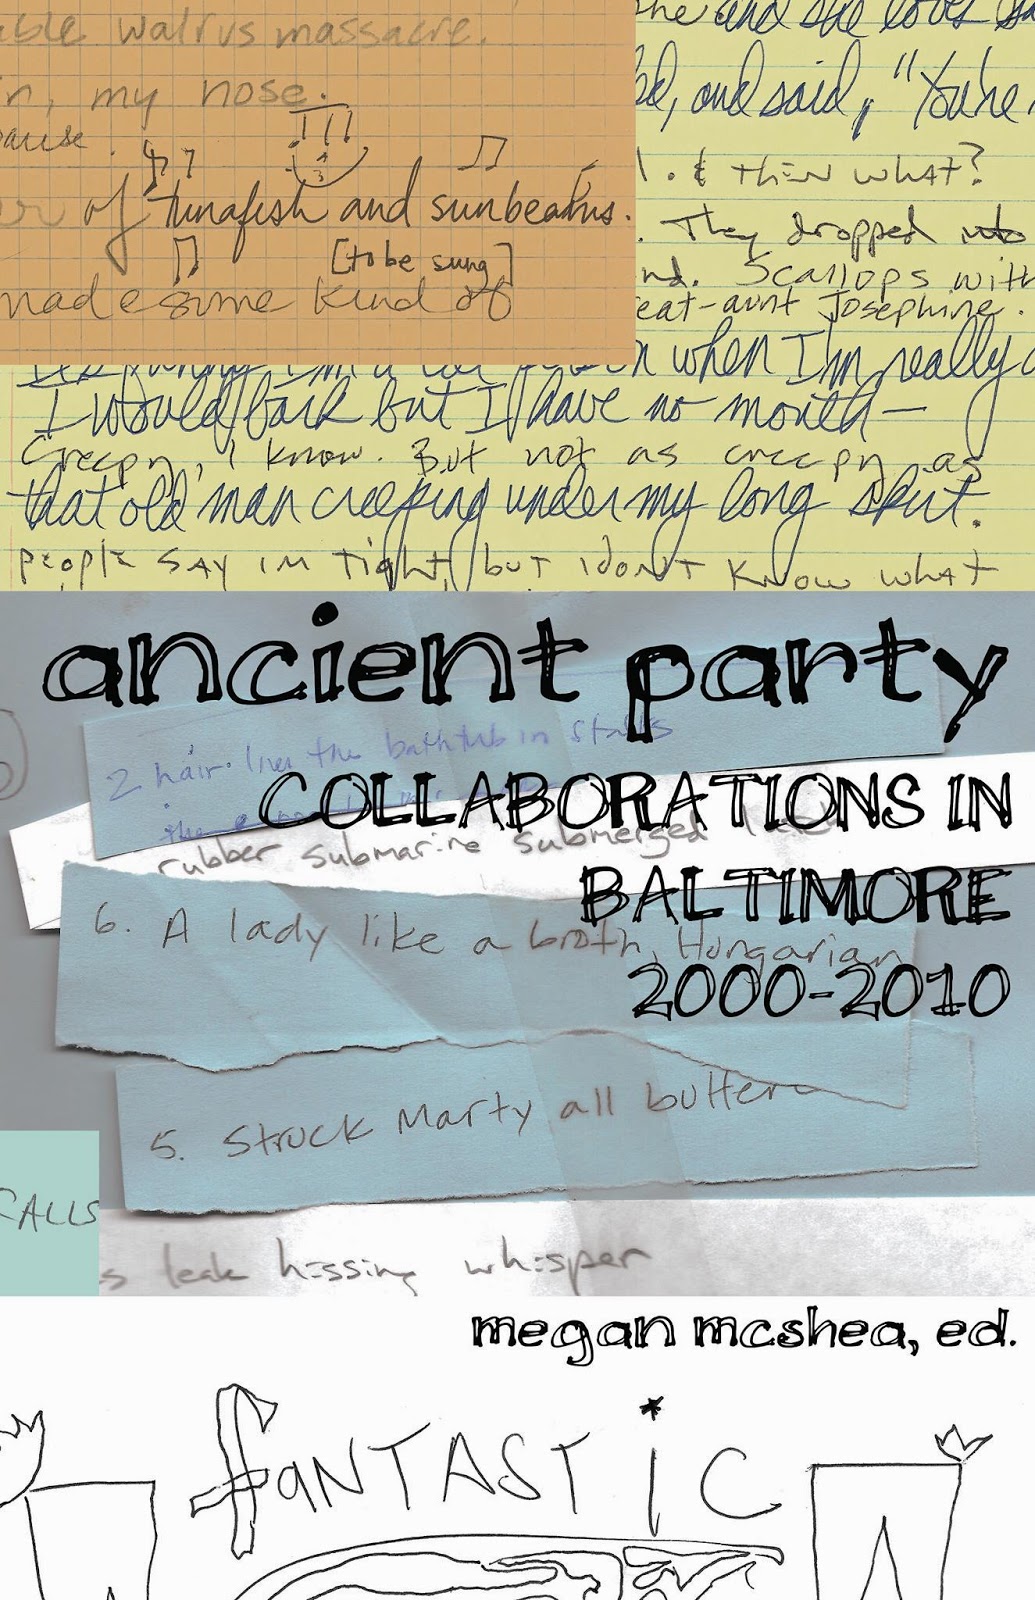 able walrus massacre.
in, my nose.
pause.
or of tunafish and sunbeams.
[to be sung]
made some kind of
she and she loves
and said, "You're
1. & then what?
They dropped
Scallops with
great-aunt Josephine.
when I'm really
I would bark but I have no mouth—
Creepy, I know. But not as creepy as
that old man creeping under my long skirt.
people say im tight, but i don't know what
ancient party
2 hair. lives the bathtub in stalks
COLLABORATIONS IN
rubber submarine submerged
BALTIMORE
6. A lady like a broth, Hungarian
2000-2010
5. Struck Marty all buttery
CALLS
leak hissing whisper
megan mcshea, ed.
fanTASTiC